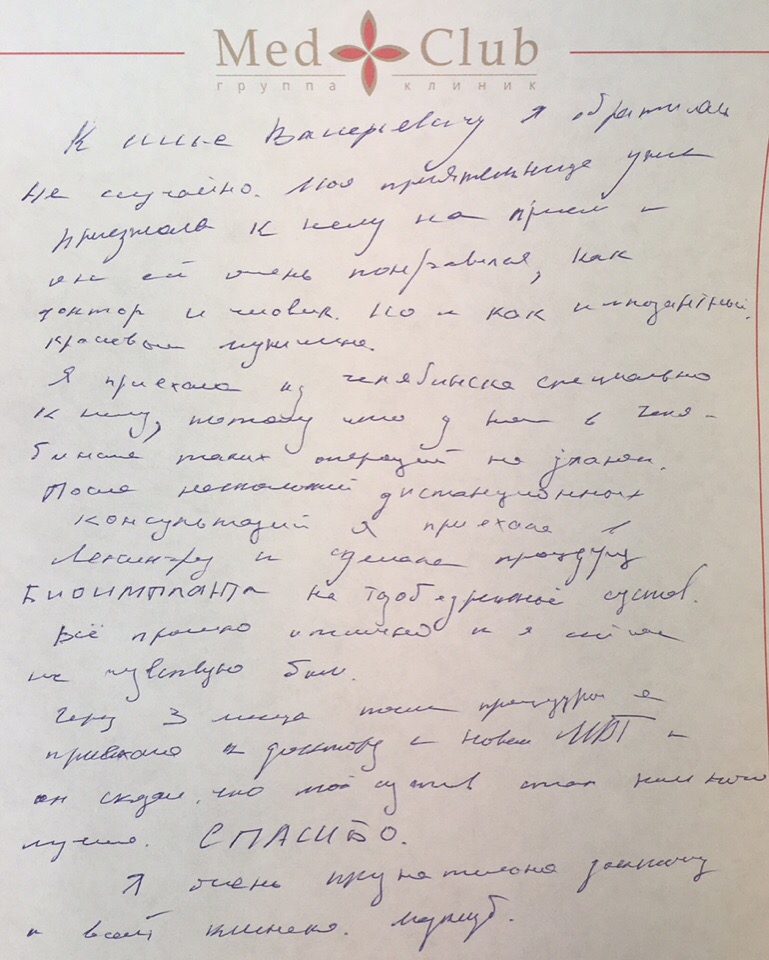 Med Club
группа клиник
К Илье Валерьевичу я обратилась
не случайно. Моя приятельница уже
приезжала к нему на прием и
он ей очень понравился, как
доктор и человек. Но и как импозантный,
красивый мужчина.
Я приехала из Челябинска специально
к нему, потому что у нас в Челя-
бинске таких операций не делают.
После нескольких дистанционных
консультаций я приехала в
Ленингр и сделала процедуру
Биоимпланта на тазобедренный сустав.
Всё прошло отлично и я сейчас
не чувствую боли.
Через 3 месяца после процедуры я
приехала к доктору с новым МРТ и
он сказал, что мой сустав стал намного
лучше. СПАСИБО.
Я очень признательна доктору
и всей клинике.